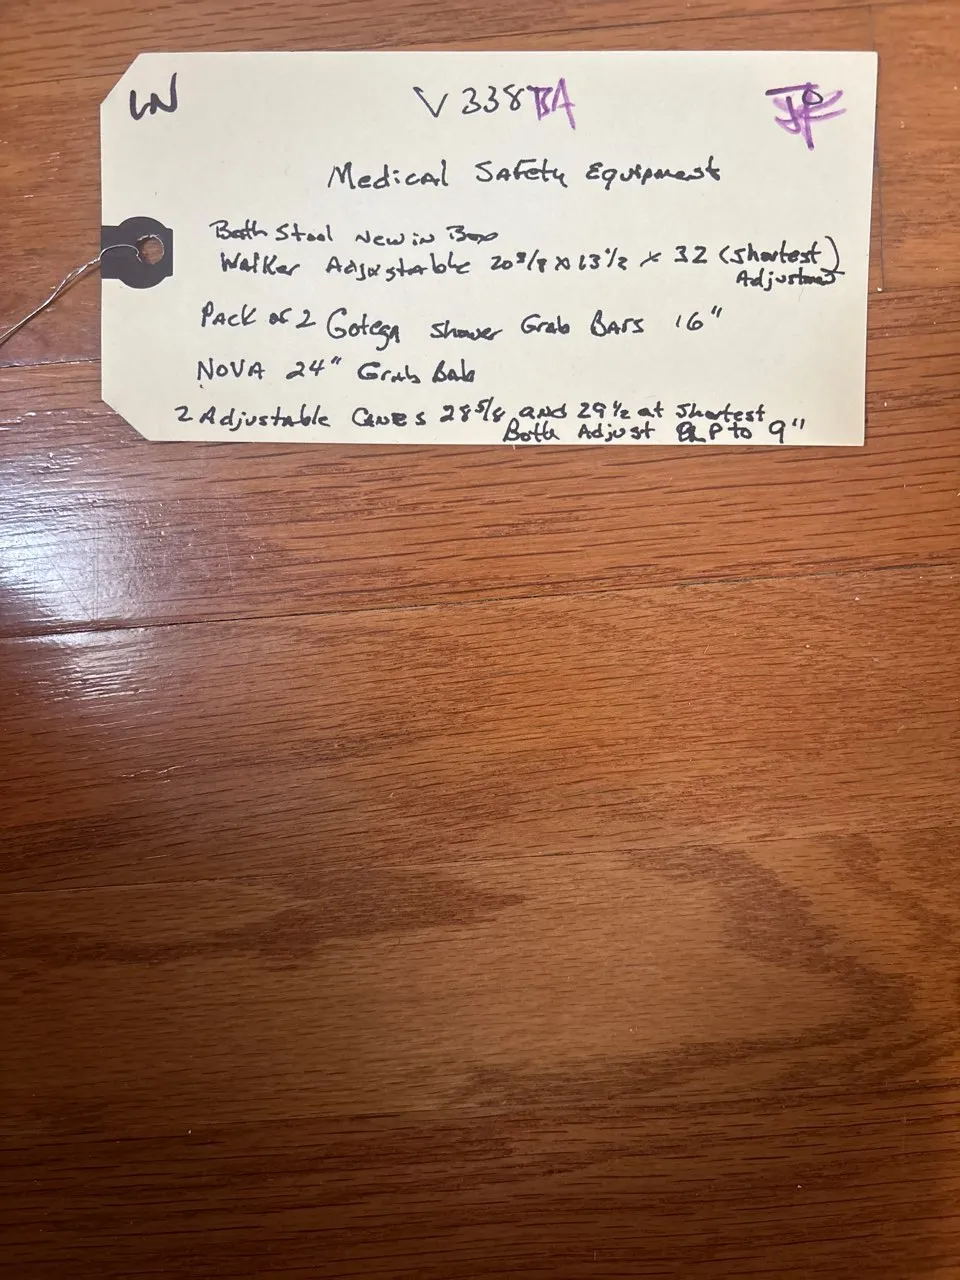 LN V338BA
Medical Safety Equipment
Bath Stool New in Box
Walker Adjustable 20 3/8 x 13 1/2 x 32 (Shortest)
Adjustment
Pack of 2 Gotega Shower Grab Bars 16"
NOVA 24" Grab Bab
2 Adjustable Canes 28 5/8 and 29 1/2 at Shortest
Both Adjust up to 9"